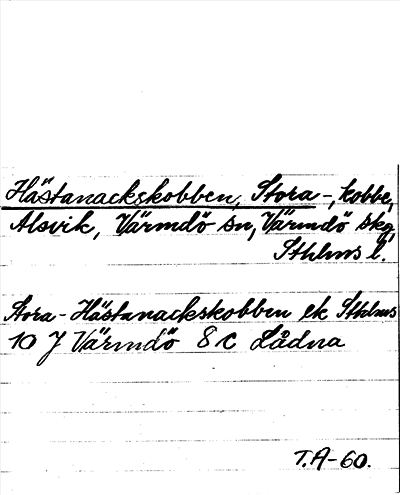 Hästanackskobben, Stora -, kobbe,
Alsvik, Värmdö sn, Värmdö skg,
Sthlms l.
Stora - Hästanackskobben ek Sthlms
10 J Värmdö 8 c Lådna
T.A-60.